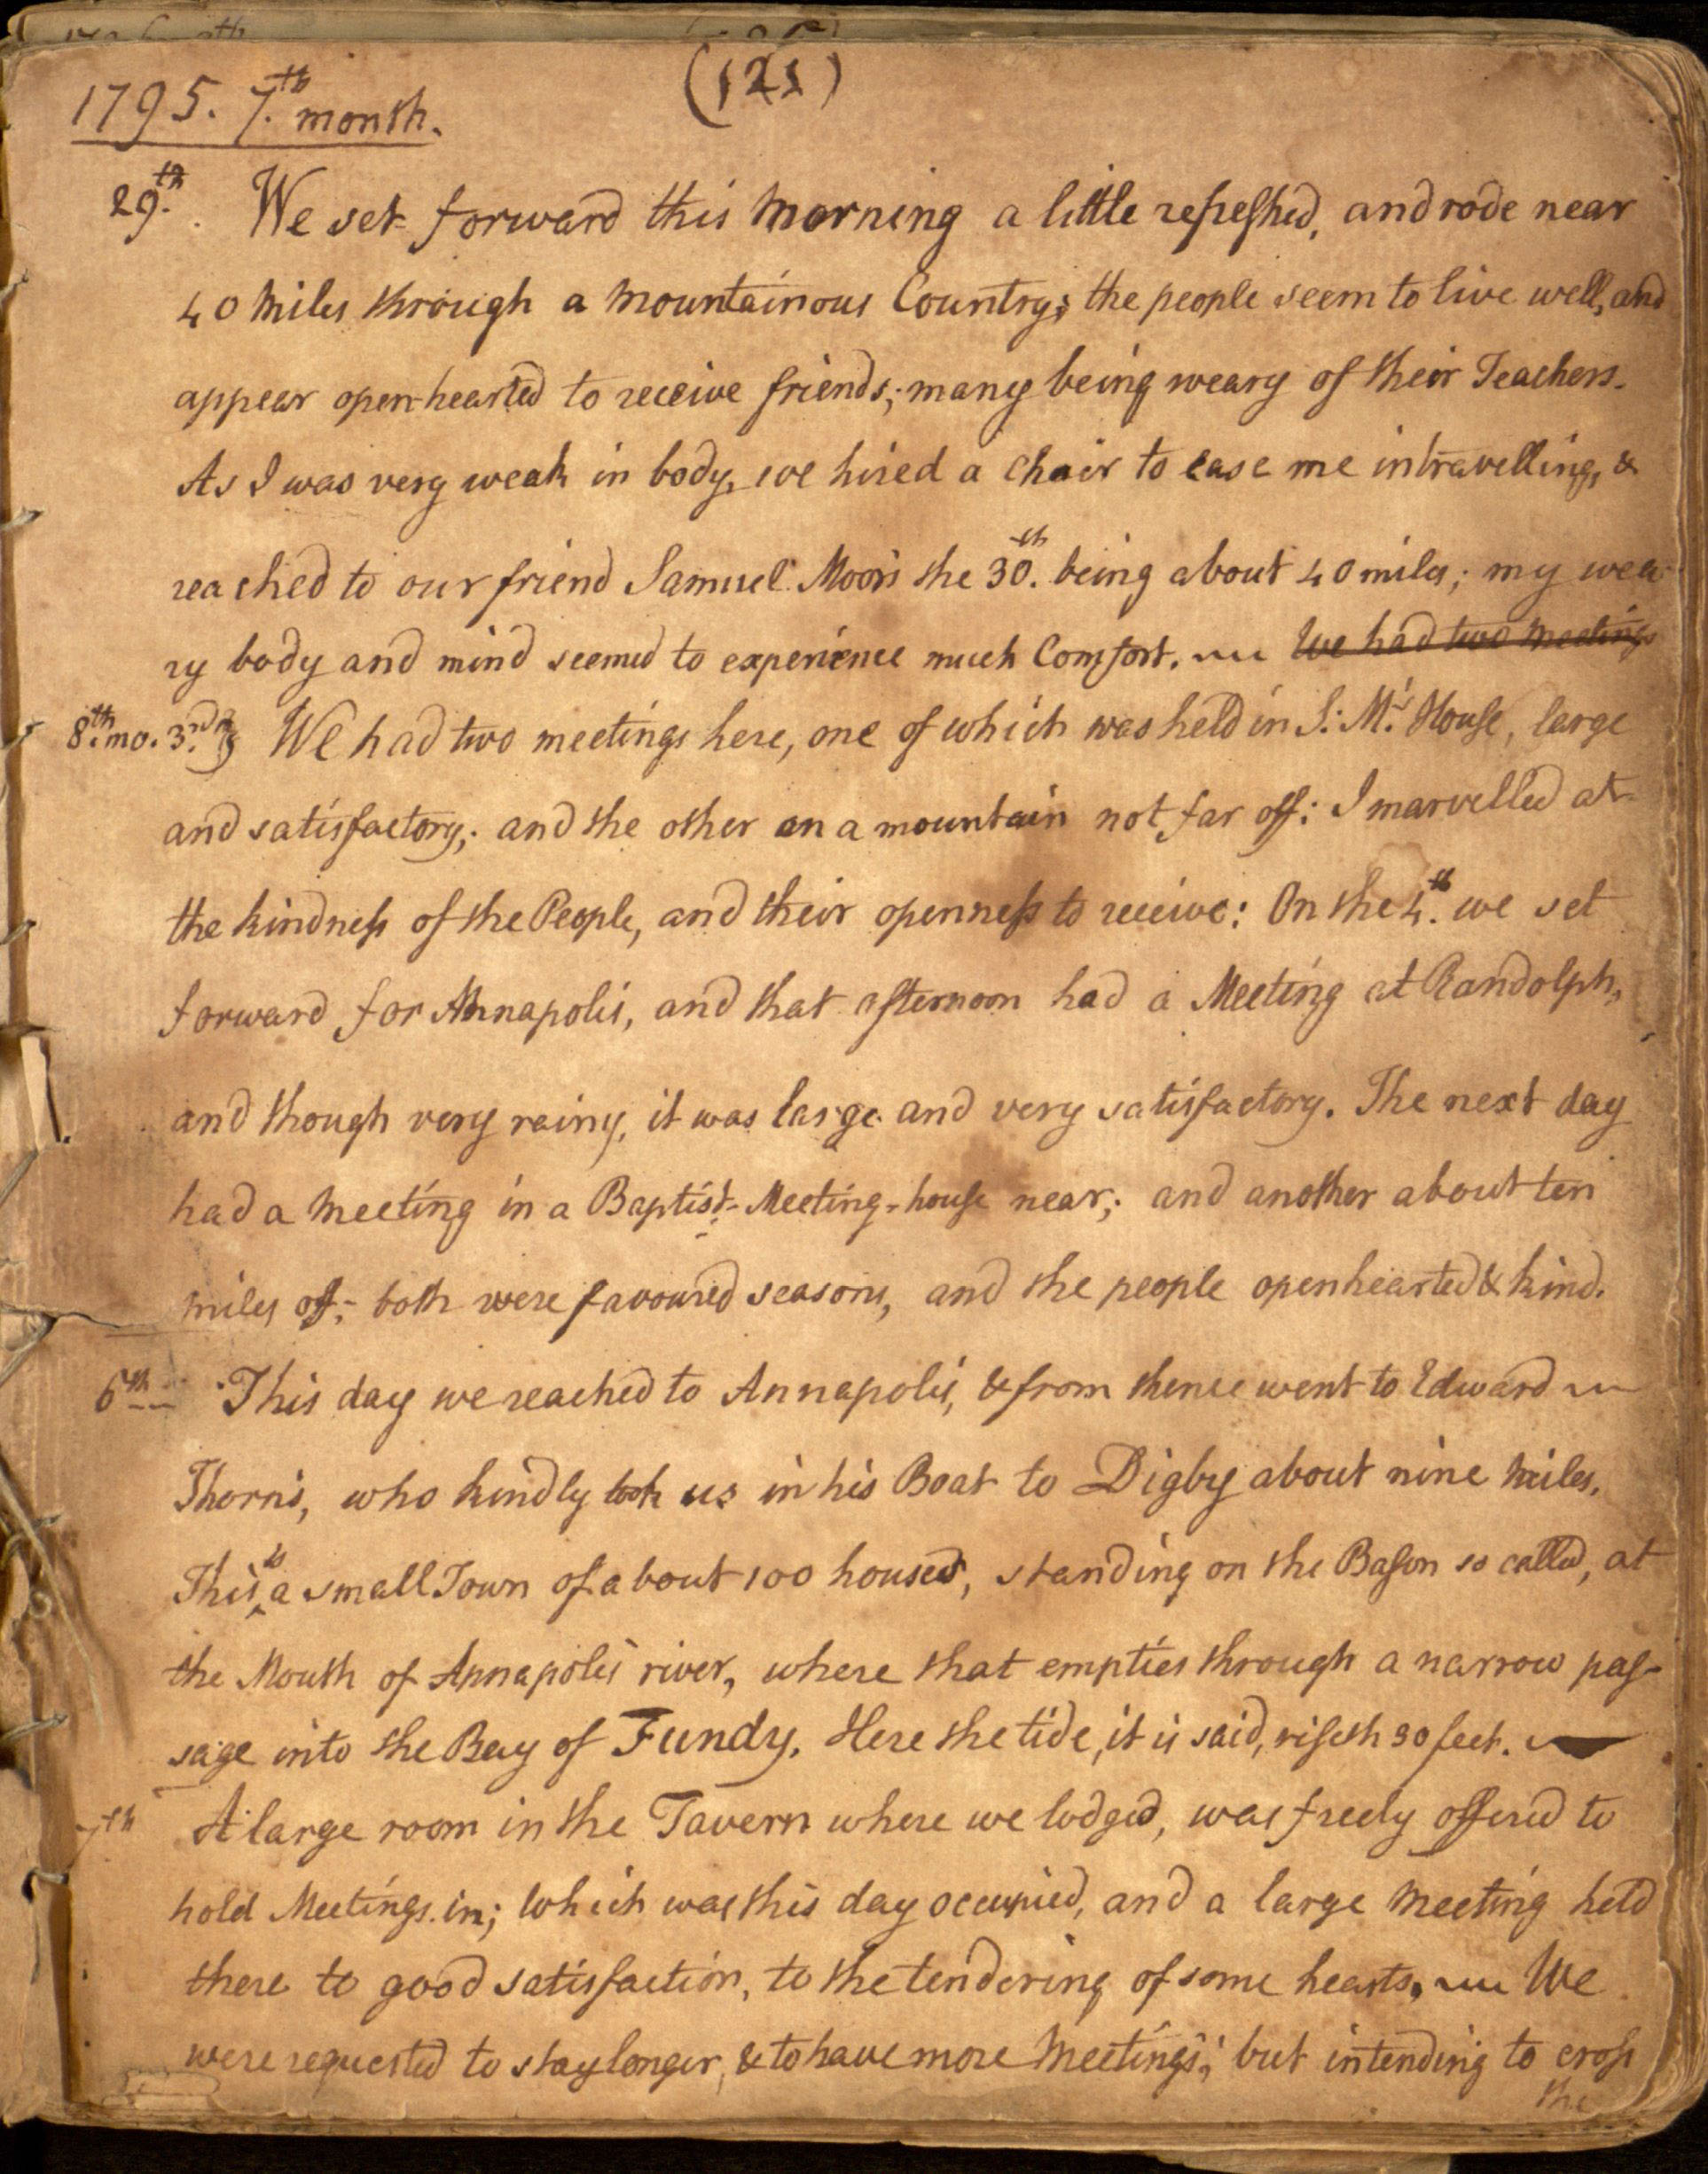 (121)
1795. 7.th month.
29.th. We set forward this Morning a little refreshed, and rode near
40 Miles through a Mountainous Country; the people seem to live well, and
appear open-hearted to receive friends; many being weary of their Teachers.
As I was very weak in body, we hired a Chair to ease me in travelling, &
reached to our friend Samuel Moor's the 30.th being about 40 miles; my wea-
ry body and mind seemed to experience much Comfort. We had two Meetings
8.th mo. 3.rd We had two meetings here, one of which was held in S: M.'s House, large
and satisfactory; and the other on a mountain not far off: I marvelled at
the kindness of the People, and their openness to receive: On the 4.th we set
forward for Annapolis, and that afternoon had a Meeting at Randolph,
and though very rainy, it was large and very satisfactory. The next day
had a Meeting in a Baptist-Meeting-house near; and another about ten
miles off; both were favoured seasons, and the people openhearted & kind.
6th This day we reached to Annapolis, & from thence went to Edward
Thorn's, who kindly took us in his Boat to Digby about nine Miles.
This is a small Town of about 100 houses, standing on the Bason so called, at
the Mouth of Annapolis river, where that empties through a narrow pas-
sage into the Bay of Fundy. Here the tide, it is said, riseth 30 feet.
7th A large room in the Tavern where we lodged, was freely offered to
hold Meetings in; which was this day occupied, and a large Meeting held
there to good satisfaction, to the tendering of some hearts. We
were requested to stay longer, & to have more Meetings; but intending to cross
the